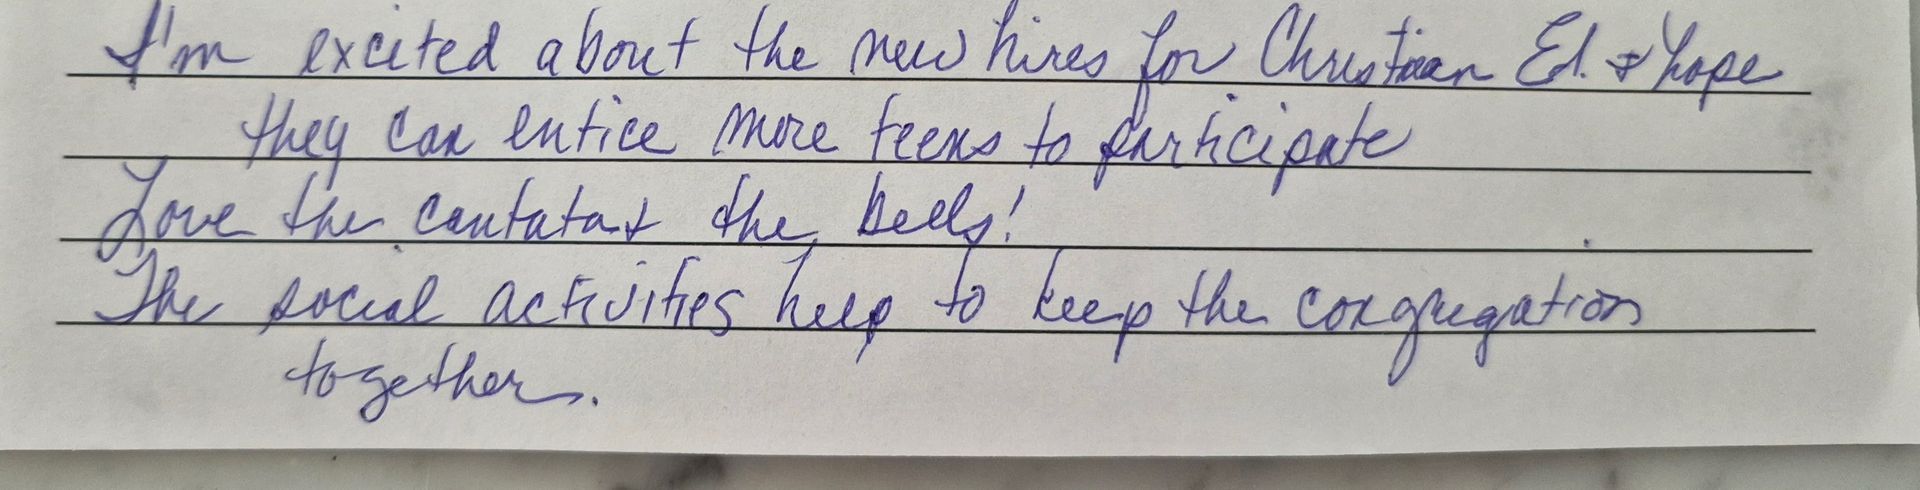 I'm excited about the new hires for Christian Ed. & hope
they can entice more teens to participate
Love the cantata & the bells!
The social activities help to keep the congregation
together.